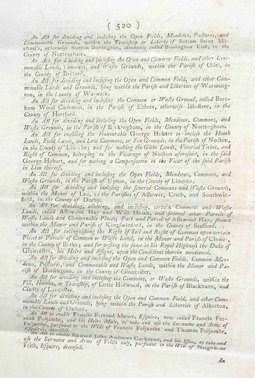 ( 520 )
An Act for dividing and inclosing the Open Fields, Meadows, Pastures, and
Commonable Grounds, within the Township or Liberty of Sutton Saint
otherwise Sutton Bonington, commonly called Bonington End, in the
County of Nottingham.
An Act for dividing and inclosing the Open and Common Fields, and other Com-
monable Lands, Commons, and Waste Grounds, within the Parish of
the County of Bedford.
An Act for dividing and inclosing the Open and Common Field, and other Com-
monable Lands and Grounds, lying within the Parish and Liberties of
in the County of Warwick.
An Act for dividing and inclosing the Common or Waste Ground, called
Wood Common, in the Parish of Elstree, otherwise Idlestree, in the
County of Hertford.
An Act for dividing and inclosing the Open Fields, Meadows, Commons, and
Waste Grounds, in the Parish of in the County of Nottingham.
An Act for enabling the Honourable George Hobart to inclose the Heath
Lands, Field Lands, and Common, or Fen Grounds, in the Parish of Nocton,
in the County of Lincoln; and for vesting the Glebe Lands, Vicarial Tithes, and
Right of Common, belonging to the Vicarage of Nocton aforesaid, in the said
George Hobart, and for making a Compensation to the Vicar of the said Parish
in Lieu thereof.
An Act for dividing and inclosing the Open Fields, Meadows, Commons, and
Waste Grounds, in the Parish of Upton, in the County of Lincoln.
An Act for dividing and inclosing the several Commons and Waste Grounds, within
the Manor of in the Parishes of Ashover, Crich, and
field, in the County of Derby.
An Act for dividing, allotting, and inclosing, certain Commons and Waste
Lands, called Heath and Heath, and several other Parcels of
Waste Lands and Commonable Places, Part and Parcel of Hays, situate
within the Manor and Parish of Kingswinford, in the County of Stafford.
An Act for extinguishing the Right of Soil and Right of Common upon certain
Pieces or Parcels of Common or Waste Land, in the Manor and Parish of Clewer,
in the County of Berks; and for vesting the same in his Royal Highness the Duke of
Gloucester, his Heirs and Assigns, upon the Conditions therein mentioned.
An Act for dividing and inclosing the Open and Common Fields, Common Mea-
dows, Pastures, and Commonable and Waste Lands, within the Manor and Pa-
rish of in the County of Gloucester.
An Act for dividing and inclosing the Commons, or Waste Grounds, within the
Vill, Hamlet, or Township, of Little Harwood, in the Parish of Blackburn, and
County of Lancaster.
An Act for dividing and inclosing the Open and Common Field, and other Com-
monable Lands and Grounds, lying within the Parish and Liberties of
in the County of Oxford.
An Act to enable Francis Ferrand Moore, Esquire, now called Francis Fer-
rand Foljambe, and his Heirs Male, to take and use the Surname and Arms of
Foljambe, pursuant to the Wills of Francis Foljambe and Thomas Foljambe,
Esquires, deceased.
An Act to enable John
use the Surname and Arms of pursuant to the Will of
Esquire, deceased.
An